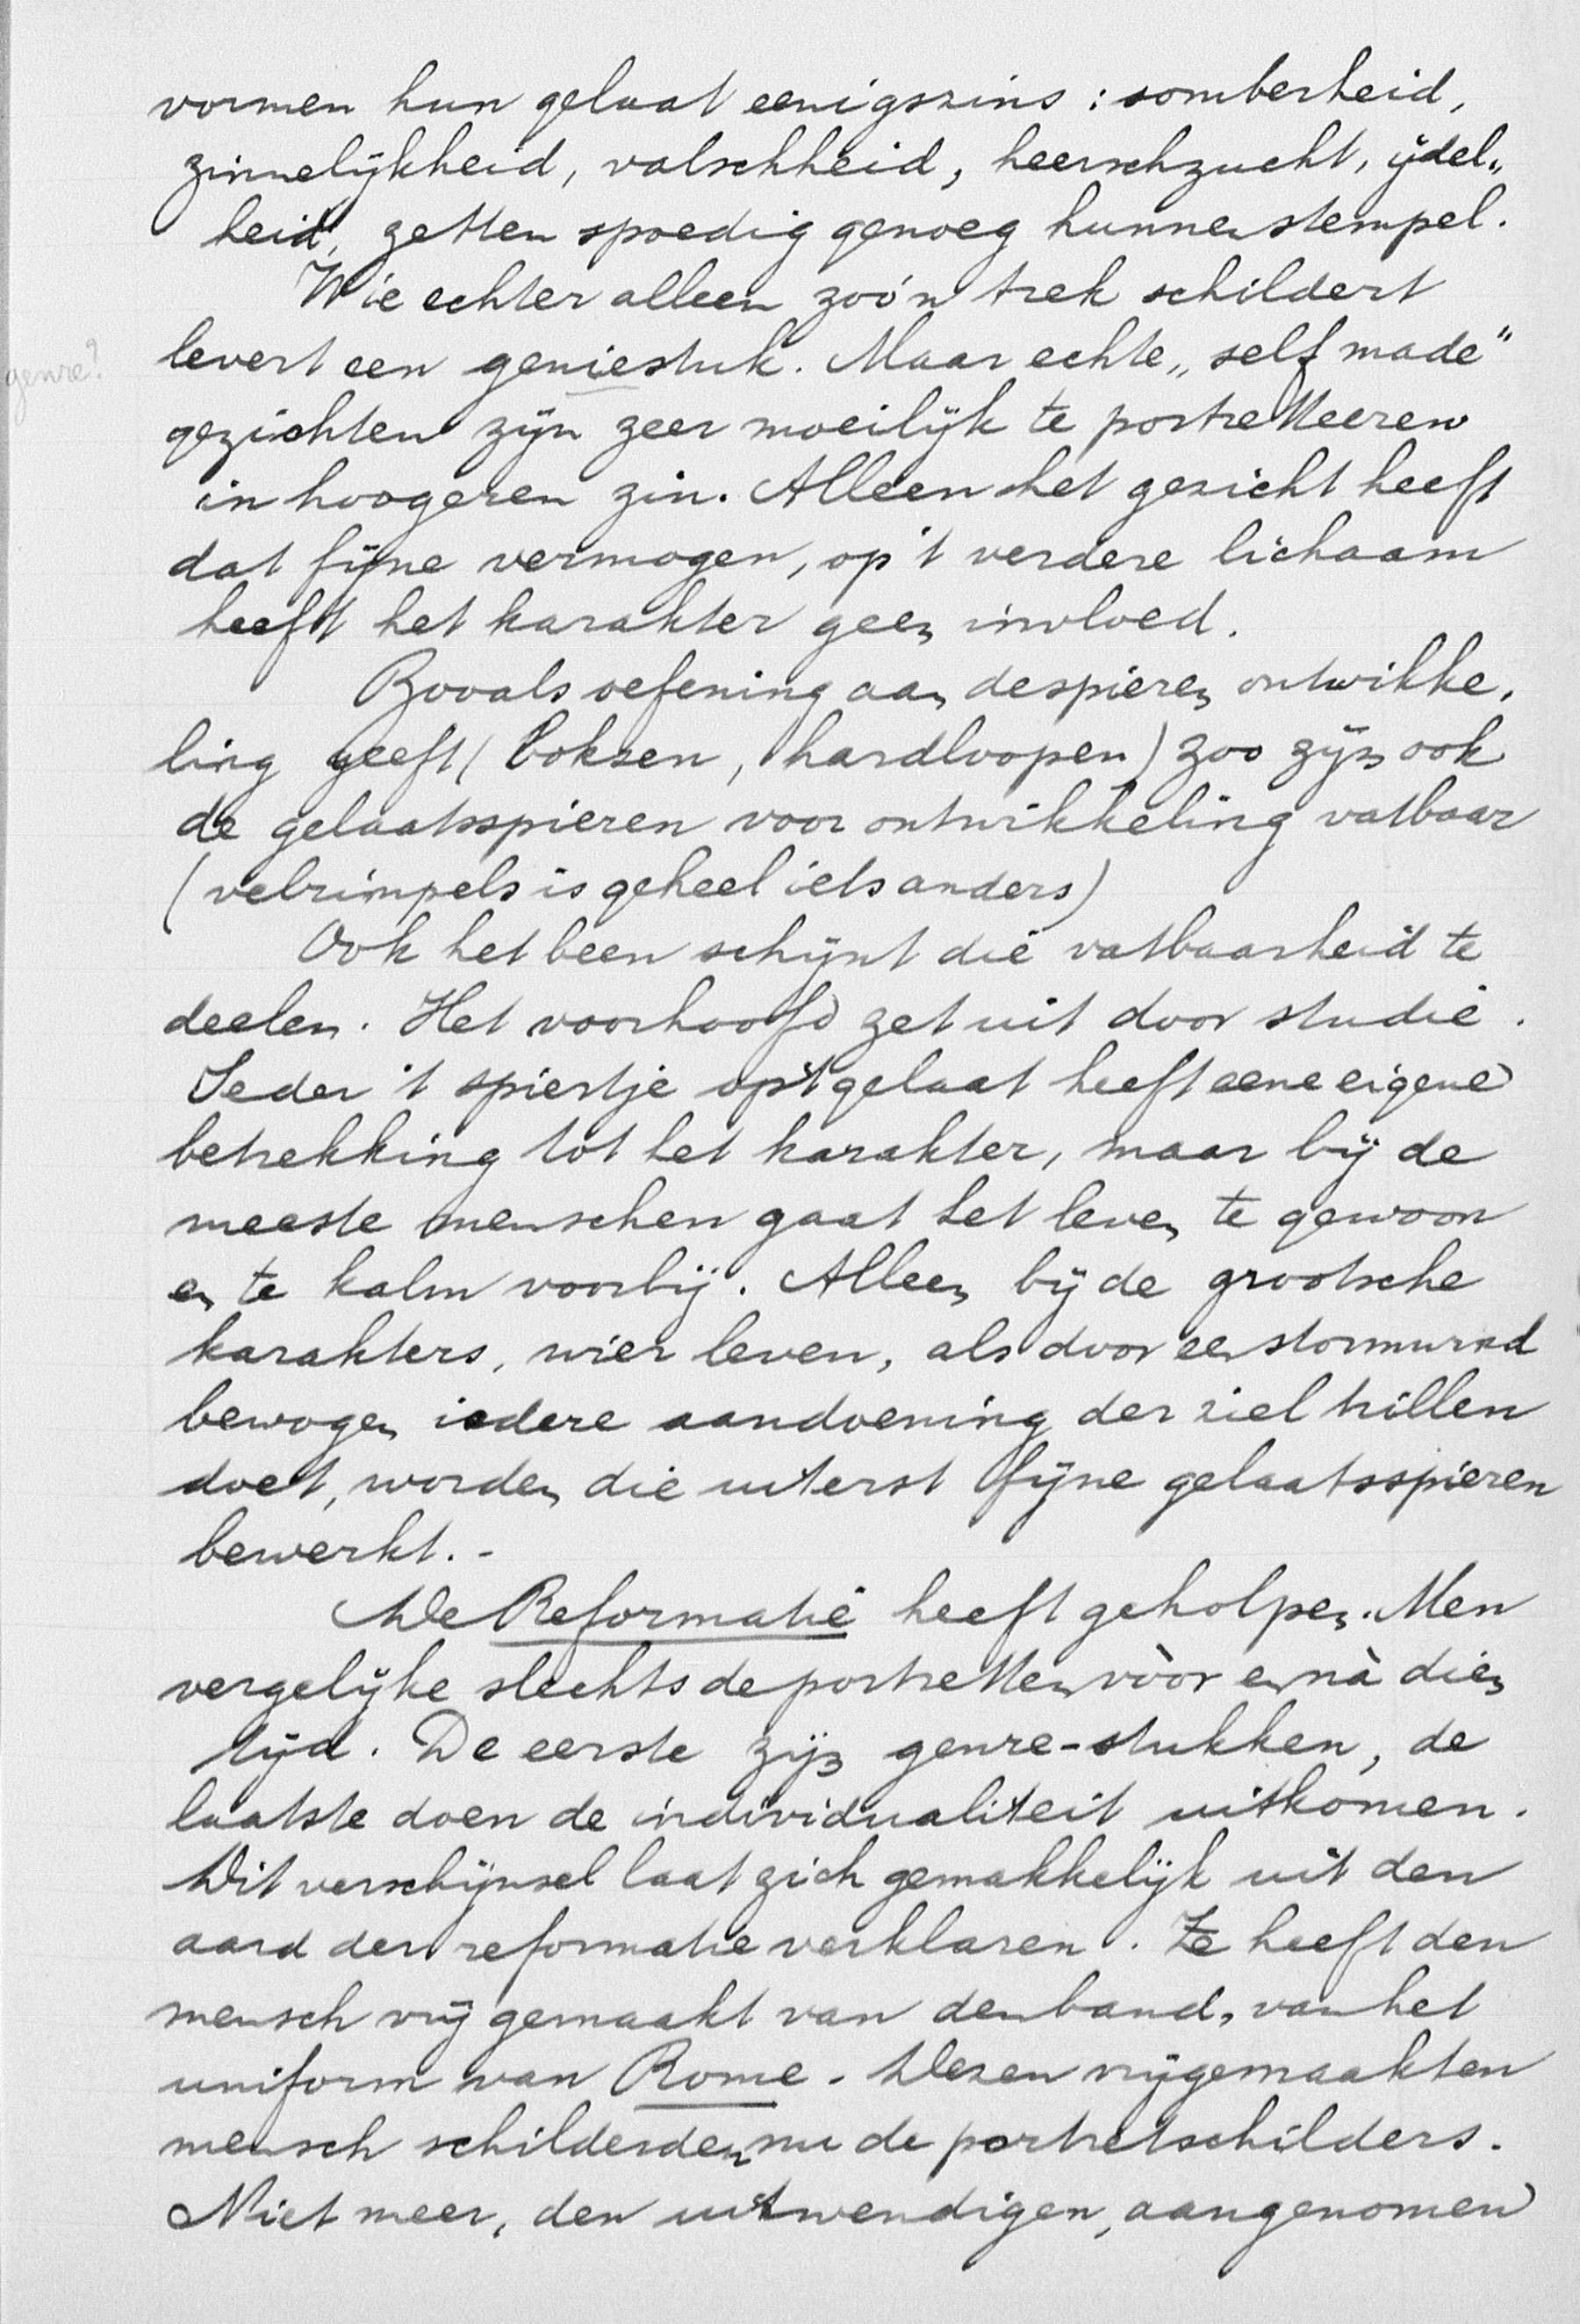 vormen hun gelaat eenigszins : somberheid,
zinnelijkheid, valschheid, heerschzucht, ijdel„
heid, zetten spoedig genoeg hunnen stempel.
Wie echter alleen zoo'n trek schildert
genre?
levert een geniestuk. Maar echte „self made"
gezichten zijn zeer moeilijk te portretteeren
in hoogeren zin. Alleen het gezicht heeft
dat fijne vermogen, op 't verdere lichaam
heeft het karakter geen invloed.
Zooals oefening aan de spieren ontwikke„
ling geeft (boksen, hardloopen) zoo zijn ook
de gelaatsspieren voor ontwikkeling vatbaar
(velrimpels is geheel iets anders)
Ook het been schijnt die vatbaarheid te
deelen. Het voorhoofd zet uit door studie.
Ieder 't spiertje op 't gelaat heeft eene eigene
betrekking tot het karakter, maar bij de
meeste menschen gaat het leven te gewoon
en te kalm voorbij. Alleen bij de grootsche
karakters, wier leven, als door een stormwind
bewogen iedere aandoening der ziel trillen
doet, worden die uiterst fijne gelaatsspieren
bewerkt. -
De Reformatie heeft geholpen. Men
vergelijke slechts de portretten vòòr en nà dien
tijd. De eerste zijn genre-stukken, de
laatste doen de individualiteit uitkomen.
Dit verschijnsel laat zich gemakkelijk uit den
aard der reformatie verklaren. Ze heeft den
mensch vrij gemaakt van den band, van het
uniform van Rome. Dezen vrijgemaakten
mensch schilderden nu de portretschilders.
Niet meer, den uitwendigen, aangenomen